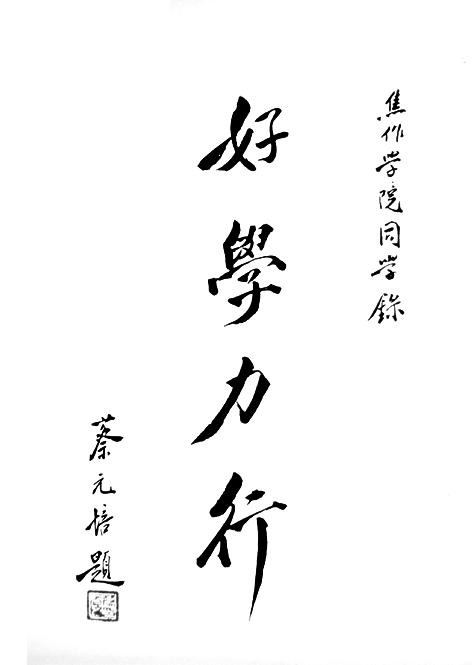 焦作学院同学錄
好學力行
蔡元培題